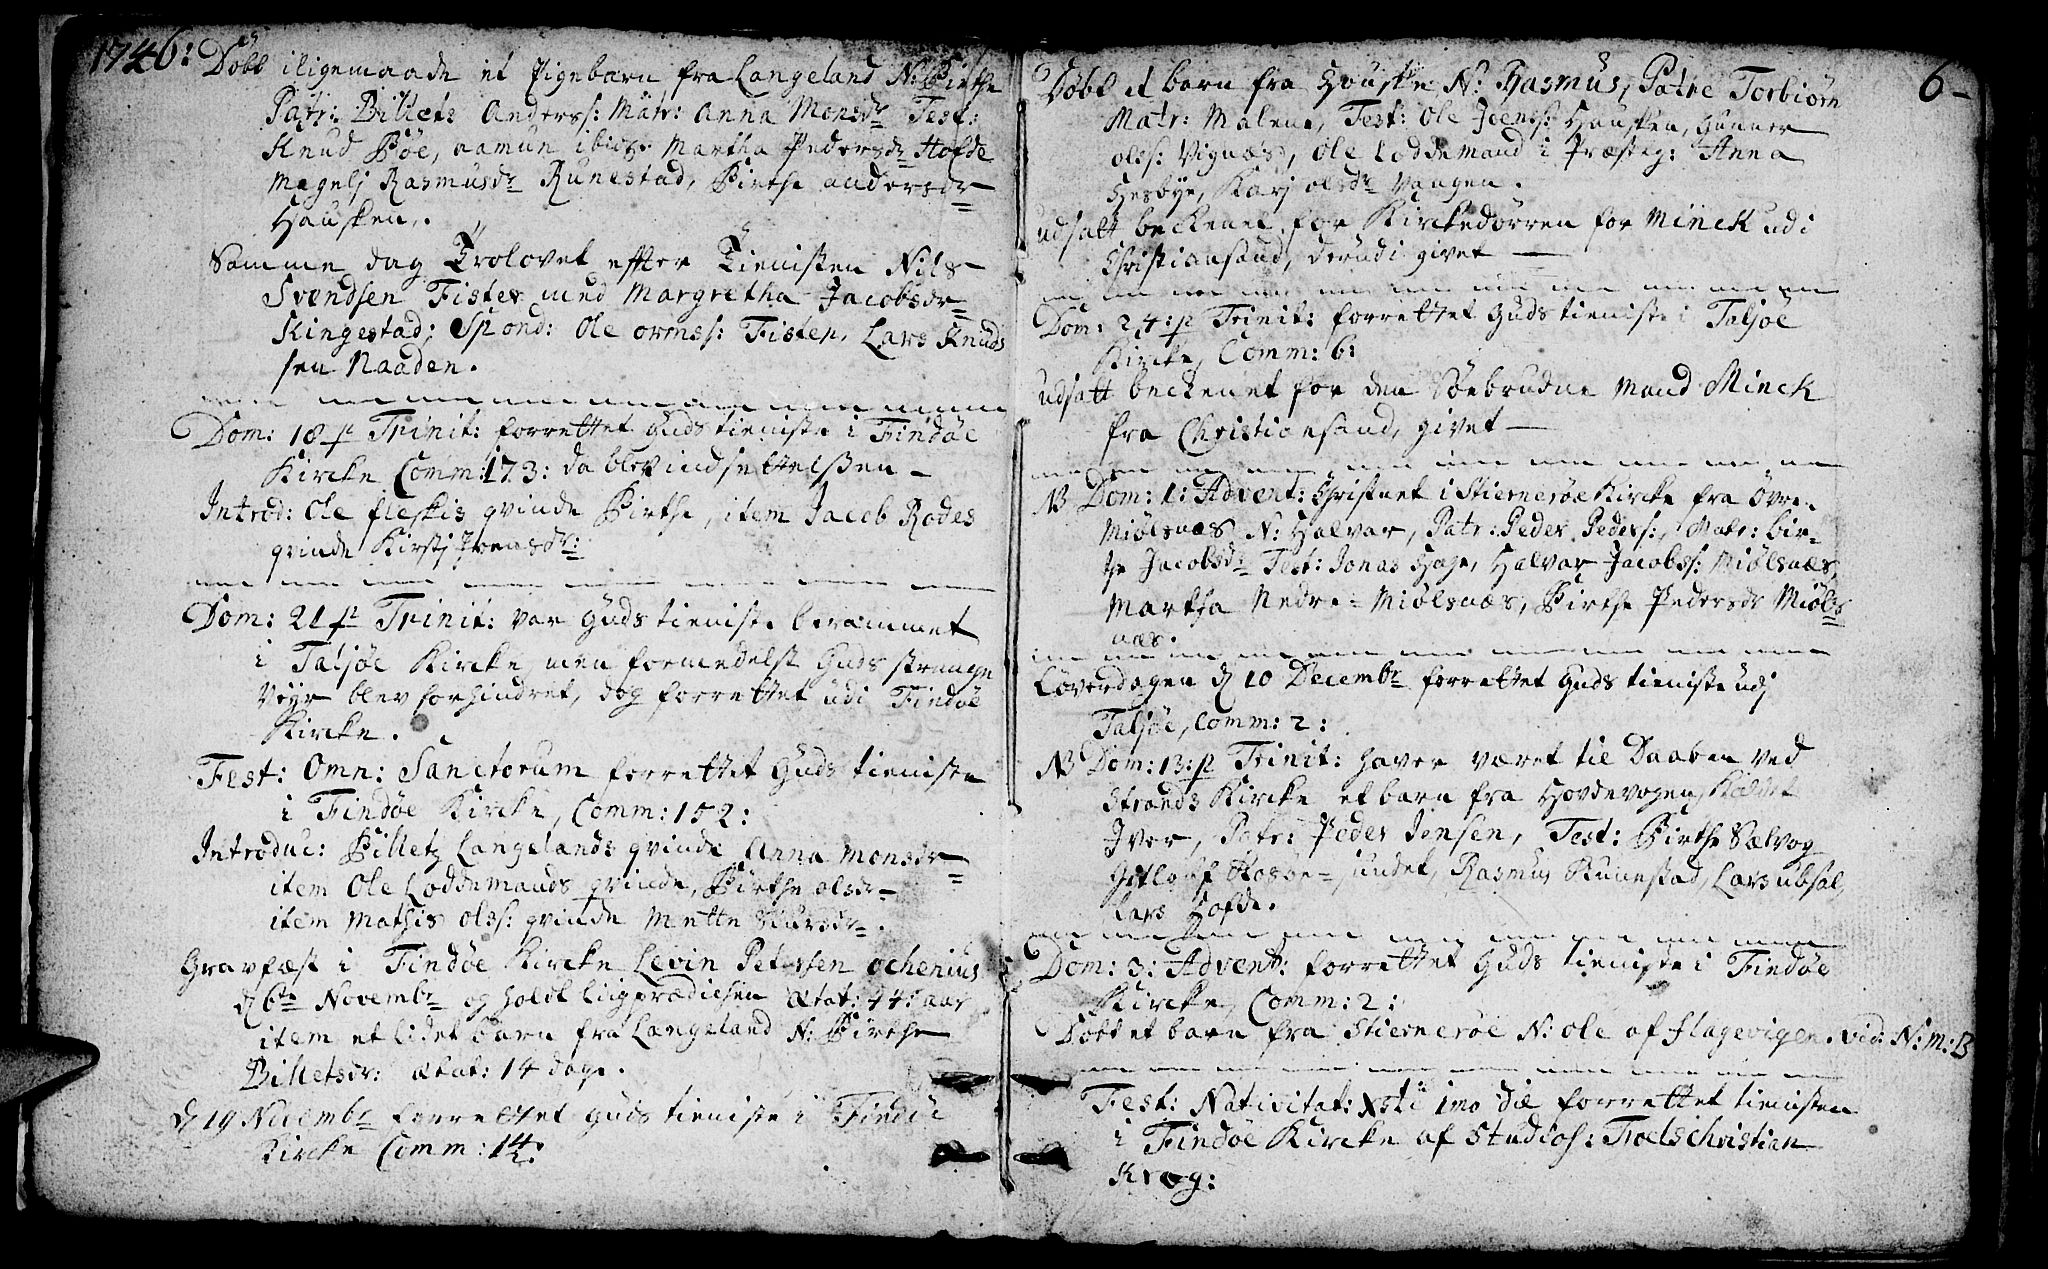 1746: Döbt iligemaade et Pigebarn fra Langeland N: Birthe
Patr: Billets Anders: Matr: Anna Monsdr Test:
Knud Böe, aamun ibid: Martha Pedersdr Hofde
Magelj Rasmusdr Runestad, Birthe andersdr
Hausken.
Samme dag Trolovet effter Tienisten Nils
Svendsen Fister med Margretha Jacobsdr
Kingestad; Spond: Ole ormss: Fisten, Lars Knud
sen Naaden.
Dom: 18 p Trinit: forrettet Guds tieniste i Findöe
Kircke Comm: 173: da blev indsettelsen
Introd: Ole fleskis qvinde Birthe, item Jacob Rodes
qvinde Kirstj Ivensdr:
Dom: 21 p Trinit: var Guds tieniste berammet
i Taljöe Kircke, men formedelst Guds strenge
Veyr blev forhindret, dog forrettet udi Findöe
Kircke.
Fest: Omn: Sanctorum forrettet Guds tienisten
i Findöe Kircke, Comm: 152:
Introduc: Billetz Langelands qvinde Anna monsdr
item Ole Loddemands qvinde, Birthe olsdr
item Mathis olss: qvinde Mette
Gravfæst i Findöe Kircke Levin Petersen ochenius
d 6te Novembr og holdt liigprædicken ætat: 44: aar
item et lidet barn fra Langeland N: Birthe
Billetsdr: ætat: 14 dage.
d 19 Novembr forrettet Guds tieniste i Findöe
Kircke Comm: 14:
6
Döbt et barn fra Hauske N: Rasmus, Patre Torbiörn
Matr: Malene, Test: Ole Jeens: Hausken, Gunner
olss: Vignæs, Ole Loddemand i Præsteg: Anna
Hesbye, Karj olsdr Vangen.
udsatt beckenet for Kirckedörren for Minck udi
Christiansand, derudi givet
Dom: 24: p Trinit: forrettet Guds tieniste i Taljöe
Kircke, Comm: 6:
udsatt beckenet for den Söebrudne Mand Minck
fra Christiansand, givet
NB Dom: 1: Advent: Christnet i Stierneröe Kircke fra Övre
Miölsnæs N: Halvar, Patr: Peder Peders:, Matr: Bir-
the Jacobsdr Test: Jonas Hage, Halvar Jacobss: Miölsnæs,
Martha Nedre-Miölsnæs, Birthe Pedersdr Miöls
næs.
Löverdagen d 10 Decembr forrettet Guds tieniste udj
Taljöe, Comm: 2:
NB Dom: 13: p Trinit: haver været til Daaben ved
Strands Kircke et barn fra Hovdevogen, kaldet
Iver, Patr: Peder Jensen, Test: Birthe Sælvog
sundet, Rasmus Runestad, Lars ubsal,
Lars Hofde.
Dom: 3: Advent: forrettet Guds tieniste i Findöe
Kircke, Comm: 2:
Döbt et barn fra Stierneröe N: Ole af flagevigen. vid: N: m: B
Fest: Nativitat: Xsti 1mo die forrettet tienisten
i Findöe Kircke af Studios: Troels Christian
Krog: